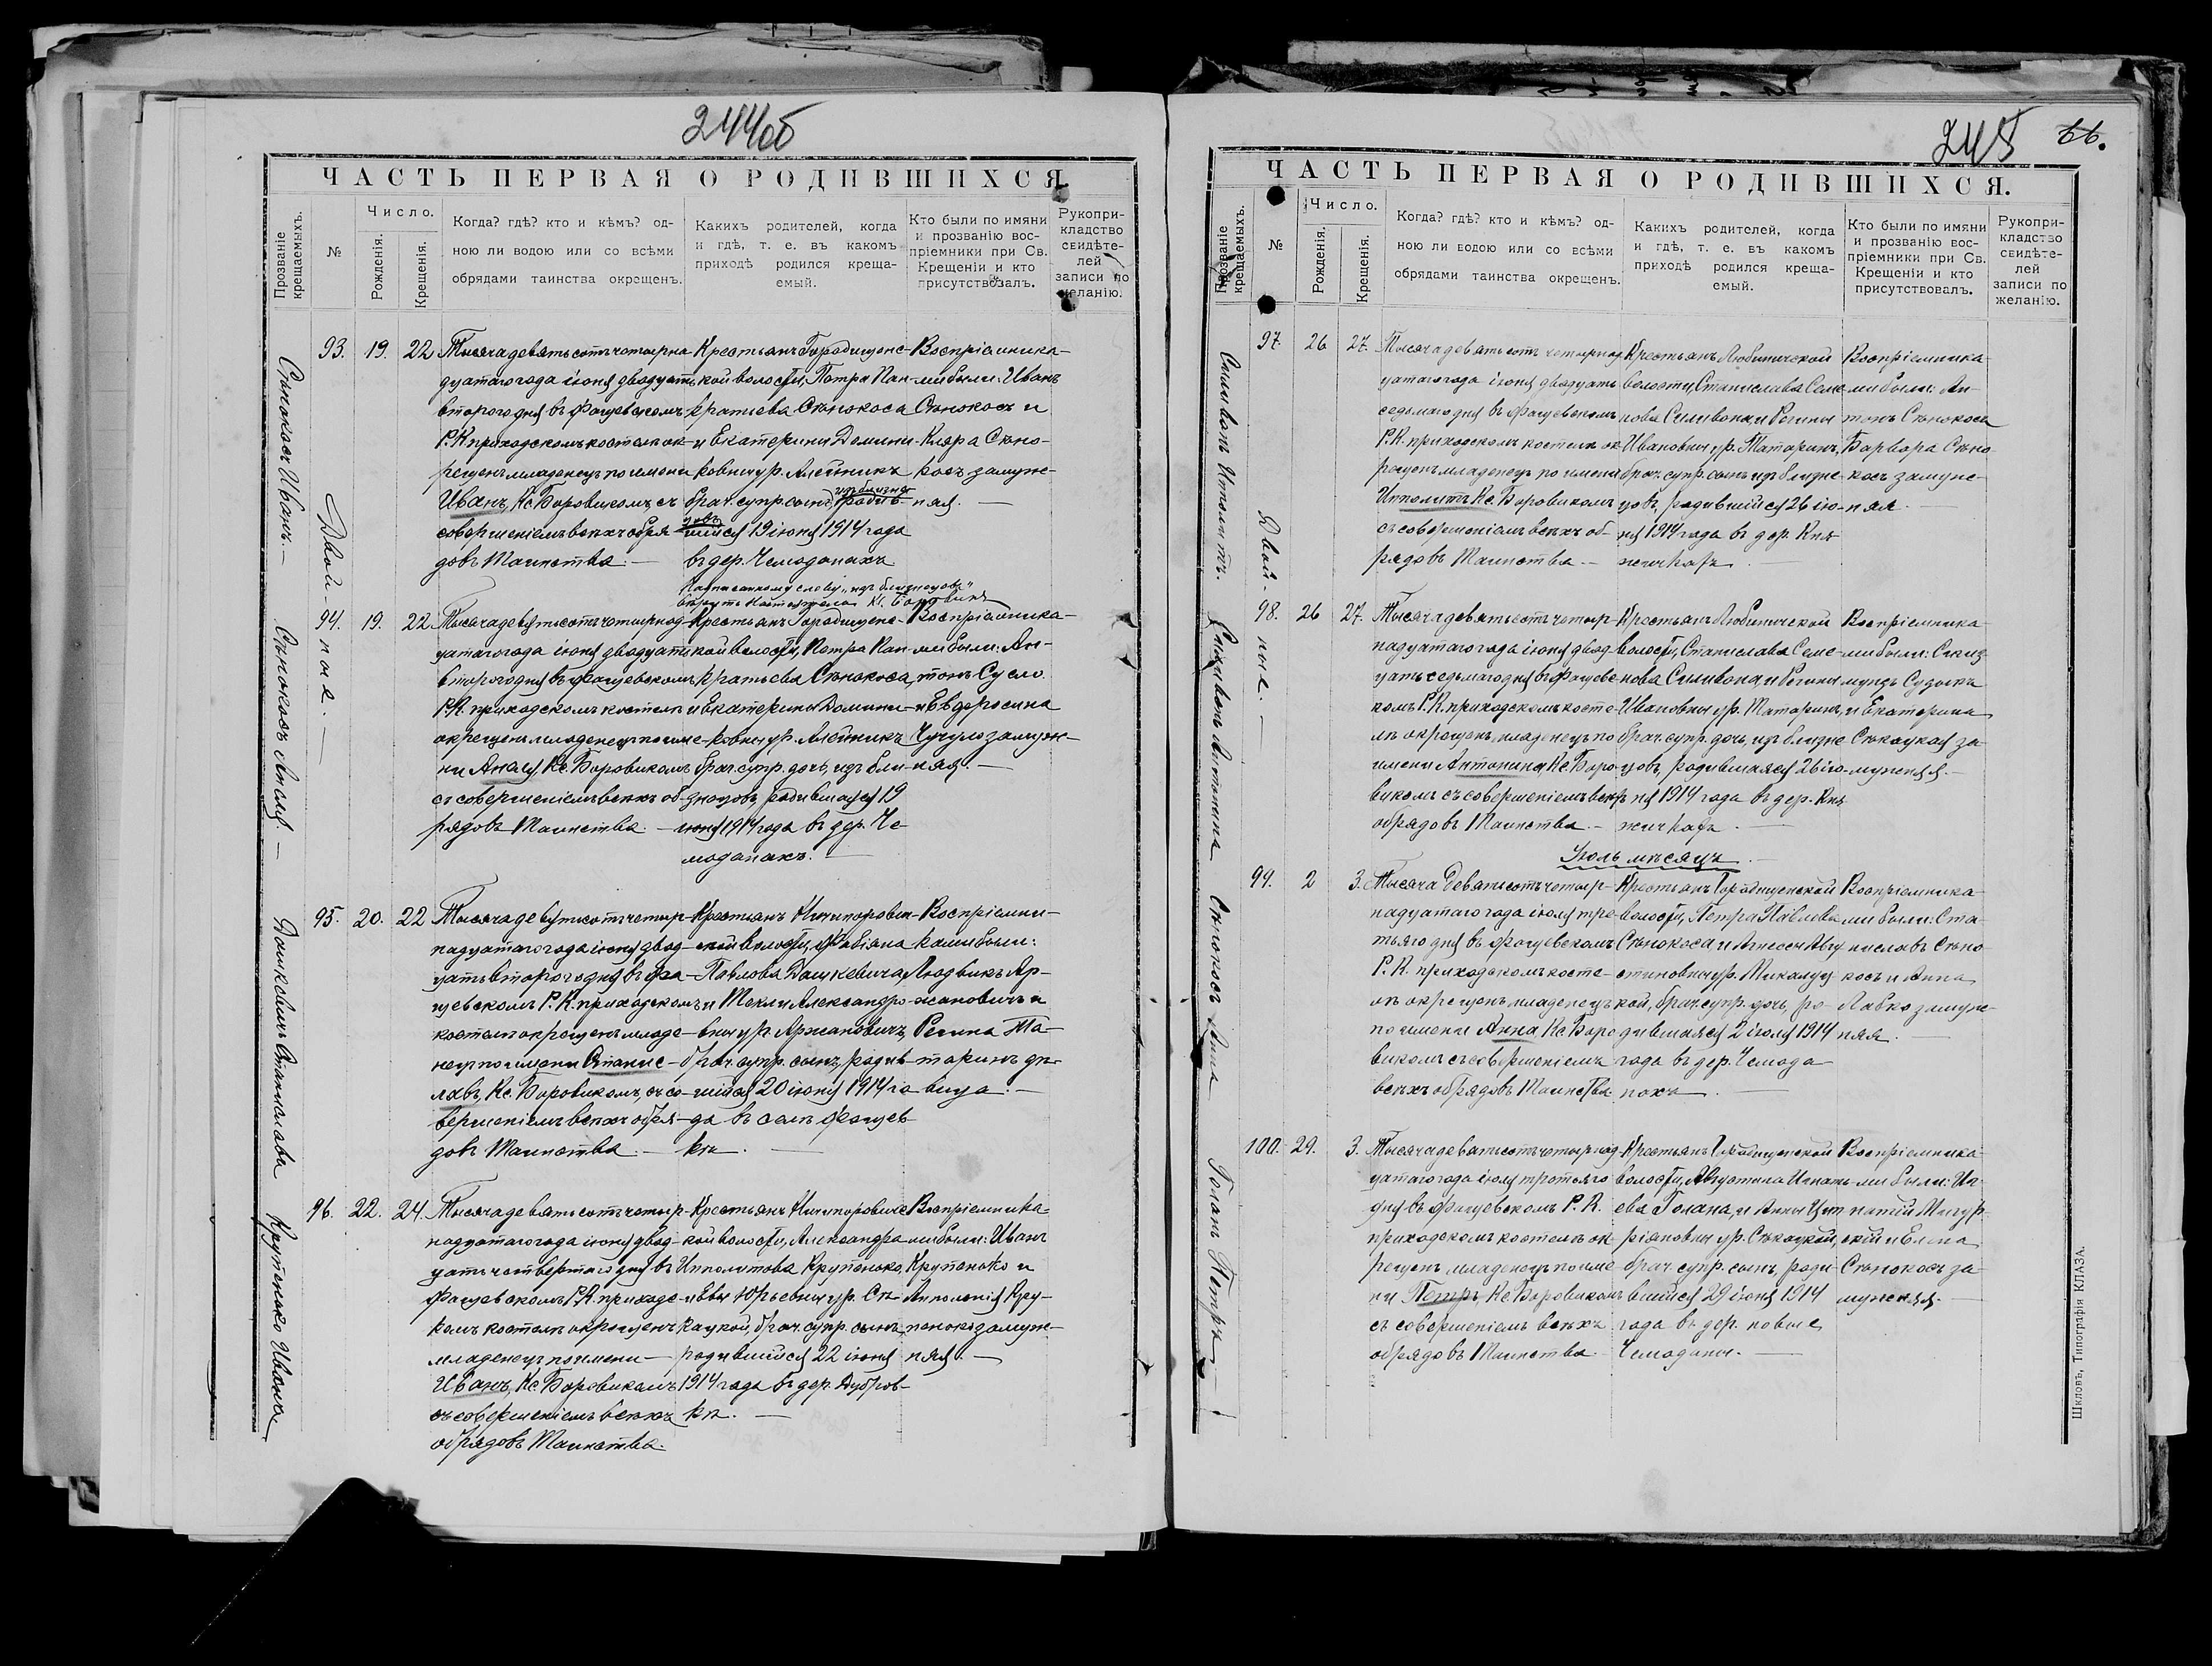 244об
ЧАСТЬ ПЕРВАЯ О РОДИВШИХСЯ
Прозваніе крещаемыхъ.
№
Число.
Рожденія.
Крещенія.
Когда? гдѣ? кто и кѣмъ? од-
ною ли водою или со всѣми
обрядами таинства окрещенъ.
Какихъ родителей, когда
и гдѣ, т. е. въ какомъ
приходѣ родился креща-
емый.
Кто были по имяни
и прозванію вос-
пріемники при Св.
Крещеніи и кто
присутствовалъ.
Рукопри-
кладство
свидѣте-
лей
записи по
желанію.
Сѣнокосъ Иванъ.
93. 19. 22
Тысяча девятьсотъ четырна
дцатаго года іюня двадцать
второго дня въ Фащевскомъ
Р.К. приходскомъ костелѣ ок-
рещенъ младенецъ по имени
Иванъ, Кс. Боровикомъ, съ
совершеніемъ всѣхъ обря
довъ Таинства.
Крестьянъ Городищенс-
кой волости, Петра Пан-
кратіева Сѣнокоса
и Екатерины Домини-
ковны ур. Алейникъ
брач. супр. сынъ изъ близне
цовъ
шійся 19 іюня 1914 года
въ дер. Чемоданахъ
Воспріемника-
ми были: Иванъ
Сѣнокосъ и
Клара Сѣно-
косъ замуж-
няя.
Двой-
ня.
Сѣнокосъ
94. 19. 22
Тысяча девятьсотъ четырнад-
цатаго года іюня двадцать
второго дня въ Фащевскомъ
Р.К. приходскомъ костелѣ
окрещенъ младенецъ по име-
ни Кс. Боровикомъ
съ совершеніемъ всѣхъ об-
рядовъ Таинства.
Крестьянъ Городищенс-
кой волости, Петра Пан-
кратьева Сѣнокоса,
и Екатерины Домини-
ковны ур. Алейникъ
брач. супр. дочь, изъ бли-
знецовъ, родившаяся 19
іюня 1914 года въ дер. Че-
моданахъ.
Воспріемника-
ми были: Ан-
тонъ Сусло
и Евдоросина
Чучуло замуж-
няя.
Дашкевичъ Станиславъ
95. 20. 22
Тысяча девятьсотъ четыр-
надцатаго года іюня двад-
цать второго дня въ Фа-
щевскомъ Р.К. приходскомъ
костелѣ окрещенъ младе-
нецъ по имени Станис-
лавъ, Кс. Боровикомъ, съ со-
вершеніемъ всѣхъ обря-
довъ Таинства.
Крестьянъ Ничипорови-
ской волости, Фабіана
Павлова Дашкевича,
и Теклы Александро-
вны ур. Аржановичъ,
брач. супр. сынъ, родив-
шійся 20 іюня 1914 го
да въ селѣ Фащев-
кѣ.
Воспріемни-
ками были:
Людвикъ Ар-
жановичъ и
Регина Та-
таринъ дѣ-
вица.
Крупенько Иванъ
96. 22. 24.
Тысяча девятьсотъ четыр-
надцатаго года іюня двад-
цать четвертаго дня въ
Фащевскомъ Р.К. приходс-
комъ костелѣ окрещенъ
младенецъ по имени
Иванъ, Кс. Боровикомъ
съ совершеніемъ всѣхъ
обрядовъ Таинства.
Крестьянъ Ничипоровичс
кой волости, Александра
Ипполитова Крупенько,
и Евы Юрьевны ур. Сѣ-
кацкой, брач. супр. сынъ,
родившійся 22 іюня
1914 года въ дер. Дубров-
кѣ.
Воспріемника-
ми были: Иванъ
Крупенько и
Апполонія Кру-
пенько замуж-
няя.
245 66.
ЧАСТЬ ПЕРВАЯ О РОДИВШИХСЯ.
Прозваніе крещаемыхъ.
№
Число.
Рожденія.
Крещенія.
Когда? гдѣ? кто и кѣмъ? од-
ною ли водою или со всѣми
обрядами таинства окрещенъ.
Какихъ родителей, когда
и гдѣ, т. е. въ какомъ
приходѣ родился креща-
емый.
Кто были по имяни
и прозванію вос-
пріемники при Св.
Крещеніи и кто
присутствовалъ.
Рукопри-
кладство
свидѣте-
лей
записи по
желанію.
Силивонъ Ипполитъ.
97. 26 27.
Тысяча девятьсотъ четырнад
цатаго года іюня двадцать
седьмаго дня въ Фащевскомъ
Р.К. приходскомъ костелѣ ок
рещенъ младенецъ по имени
Ипполитъ, Кс. Боровикомъ
съ совершеніемъ всѣхъ об-
рядовъ Таинства
Крестьянъ Любиничской
волости, Станислава Семе
нова Силивона и Регины
Ивановны ур. Татаринъ,
брач. супр. сынъ изъ близне
цовъ, родившійся 26 ію-
ня 1914 года въ дер. Кня
жичкахъ
Воспріемника-
ми были: Ан-
тонъ Сѣнокоса
Варвара Сѣно
косъ замуж-
няя.
Двой-
ня.
Силивонъ Антонина
98. 26 27.
Тысяча девятьсотъ четыр-
надцатаго года іюня двад-
цать седьмаго дня въ Фащевс-
комъ Р.К. приходскомъ косте-
лѣ окрещенъ младенецъ по
имени Антонина, Кс. Боро
викомъ съ совершеніемъ всѣхъ
обрядовъ Таинства.
Крестьянъ Любиничской
волости, Станислава Семе-
нова Силивона, и Регины
Ивановны ур. Татаринъ,
брач. супр. дочь, изъ близне
цовъ, родившаяся 26 ію-
ня 1914 года въ дер. Кня
жичкахъ.
Воспріемника-
ми были: Сигиз
мундъ Судыка
и Екатерина
Сѣкацкая за-
мужняя.
Іюль мѣсяцъ
Сѣнокосъ Анна
99. 2 3.
Тысяча девятьсотъ четыр-
надцатаго года іюля тре-
тьяго дня въ Фащевскомъ
Р.К. приходскомъ косте-
лѣ окрещенъ младенецъ
по имени Анна, Кс. Боро
викомъ съ совершеніемъ
всѣхъ обрядовъ Таинства
Крестьянъ Городищенской
волости, Петра Павлова
Сѣнокоса и Агнессы Авгу
стиновны ур. Микалуц
кой, брач. супр. дочь, ро-
дившаяся 2 іюля 1914
года въ дер. Чемода
нахъ
Воспріемника-
ми были: Ста-
ниславъ Сѣно
косъ и Анна
Лавко замуж-
няя.
Голанъ Петръ
100. 29. 3.
Тысяча девятьсотъ четырнад-
цатаго года іюля третьяго
дня въ Фащевскомъ Р.К.
приходскомъ костелѣ ок-
рещенъ младенецъ по име
ни Петръ, Кс. Боровикомъ
съ совершеніемъ всѣхъ
обрядовъ Таинства.
Крестьянъ Городищенской
волости, Августина Игнать
ева Голана, и Анны Цип
ріяновны ур. Сѣкацкой,
брач. супр. сынъ, роди-
вшійся 29 іюня 1914
года въ дер. новые
Чемоданы.
Воспріемника-
ми были: Иг-
натій
и Елена
Сѣнокосъ за-
мужняя.
Шкловъ, Типографія КЛАЗА.